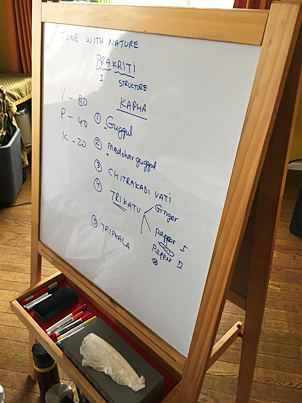 TUNE WITH NATURE
PRAKRITI
I STRUCTURE
KAPHA
V - 80
P - 40
K - 20
① Guggul
② medohar guggul
③ CHITRAKADI VATI
④ TRIKATU
Ginger
pepper I
Pepper II
⑤ TRIPHALA